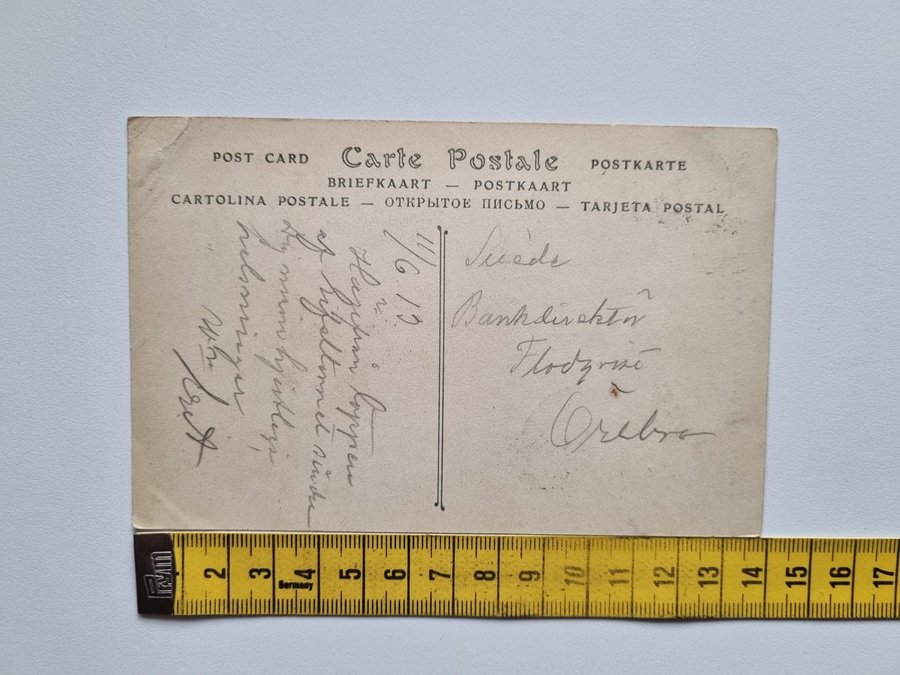 POST CARD Carte Postale POSTKARTE
BRIEFKAART — POSTKAART
CARTOLINA POSTALE — ОТКРЫТОЕ ПИСЬМО — TARJETA POSTAL
11/6. 12
Högst från toppen
af Eifseltornet sända
hjertliga
helsningar
Suède
Bankdirektör
Flodqvist
Örebro
Pym
2 3 4 5 6 7 8 9 10 11 12 13 14 15 16 17
Germany